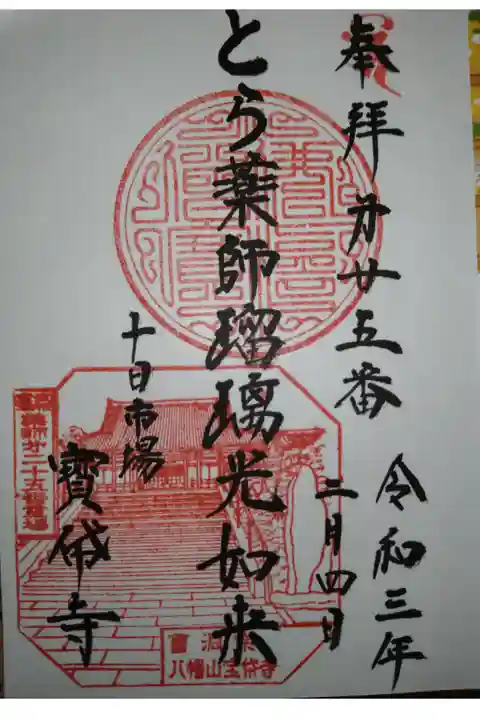 奉拝 第廿五番
令和三年
二月四日
とら薬師瑠璃光如来
十日市場
寳袋寺
薬師第二十五番霊場
曹洞宗
八幡山宝袋寺